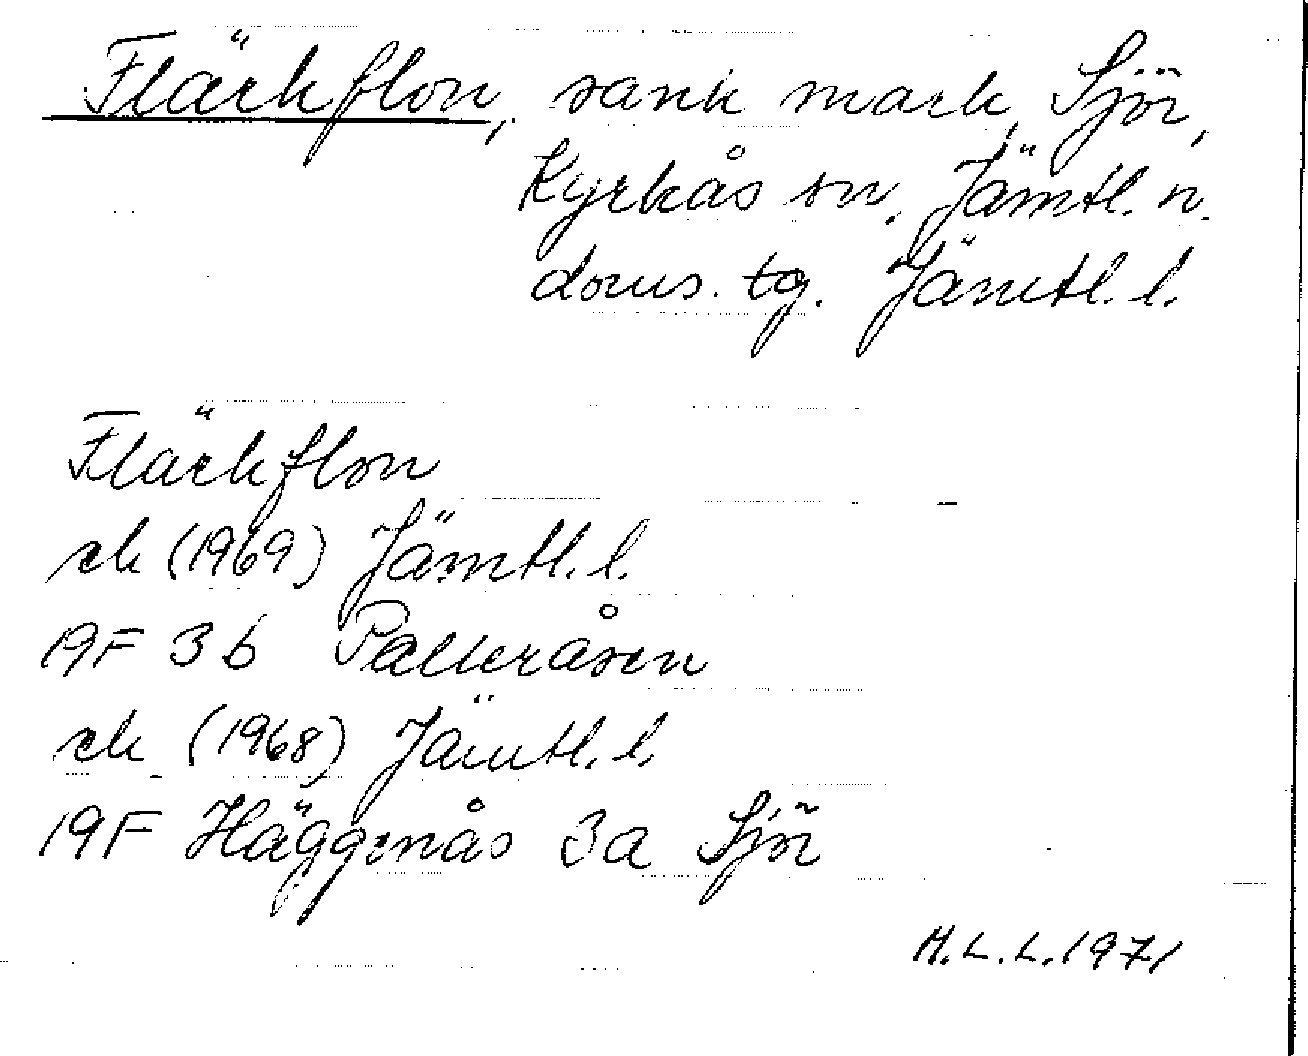 Fläckflon, sank mark, Sjör,
Kyrkås sn. Jämtl. n.
doms. tg. Jämtl. l.
Fläckflon
ek (1969) Jämtl. l.
19F 3b Palleråsen
ek (1968) Jämtl. l.
19F Häggenås 3a Sjör
H.L.L. 1971